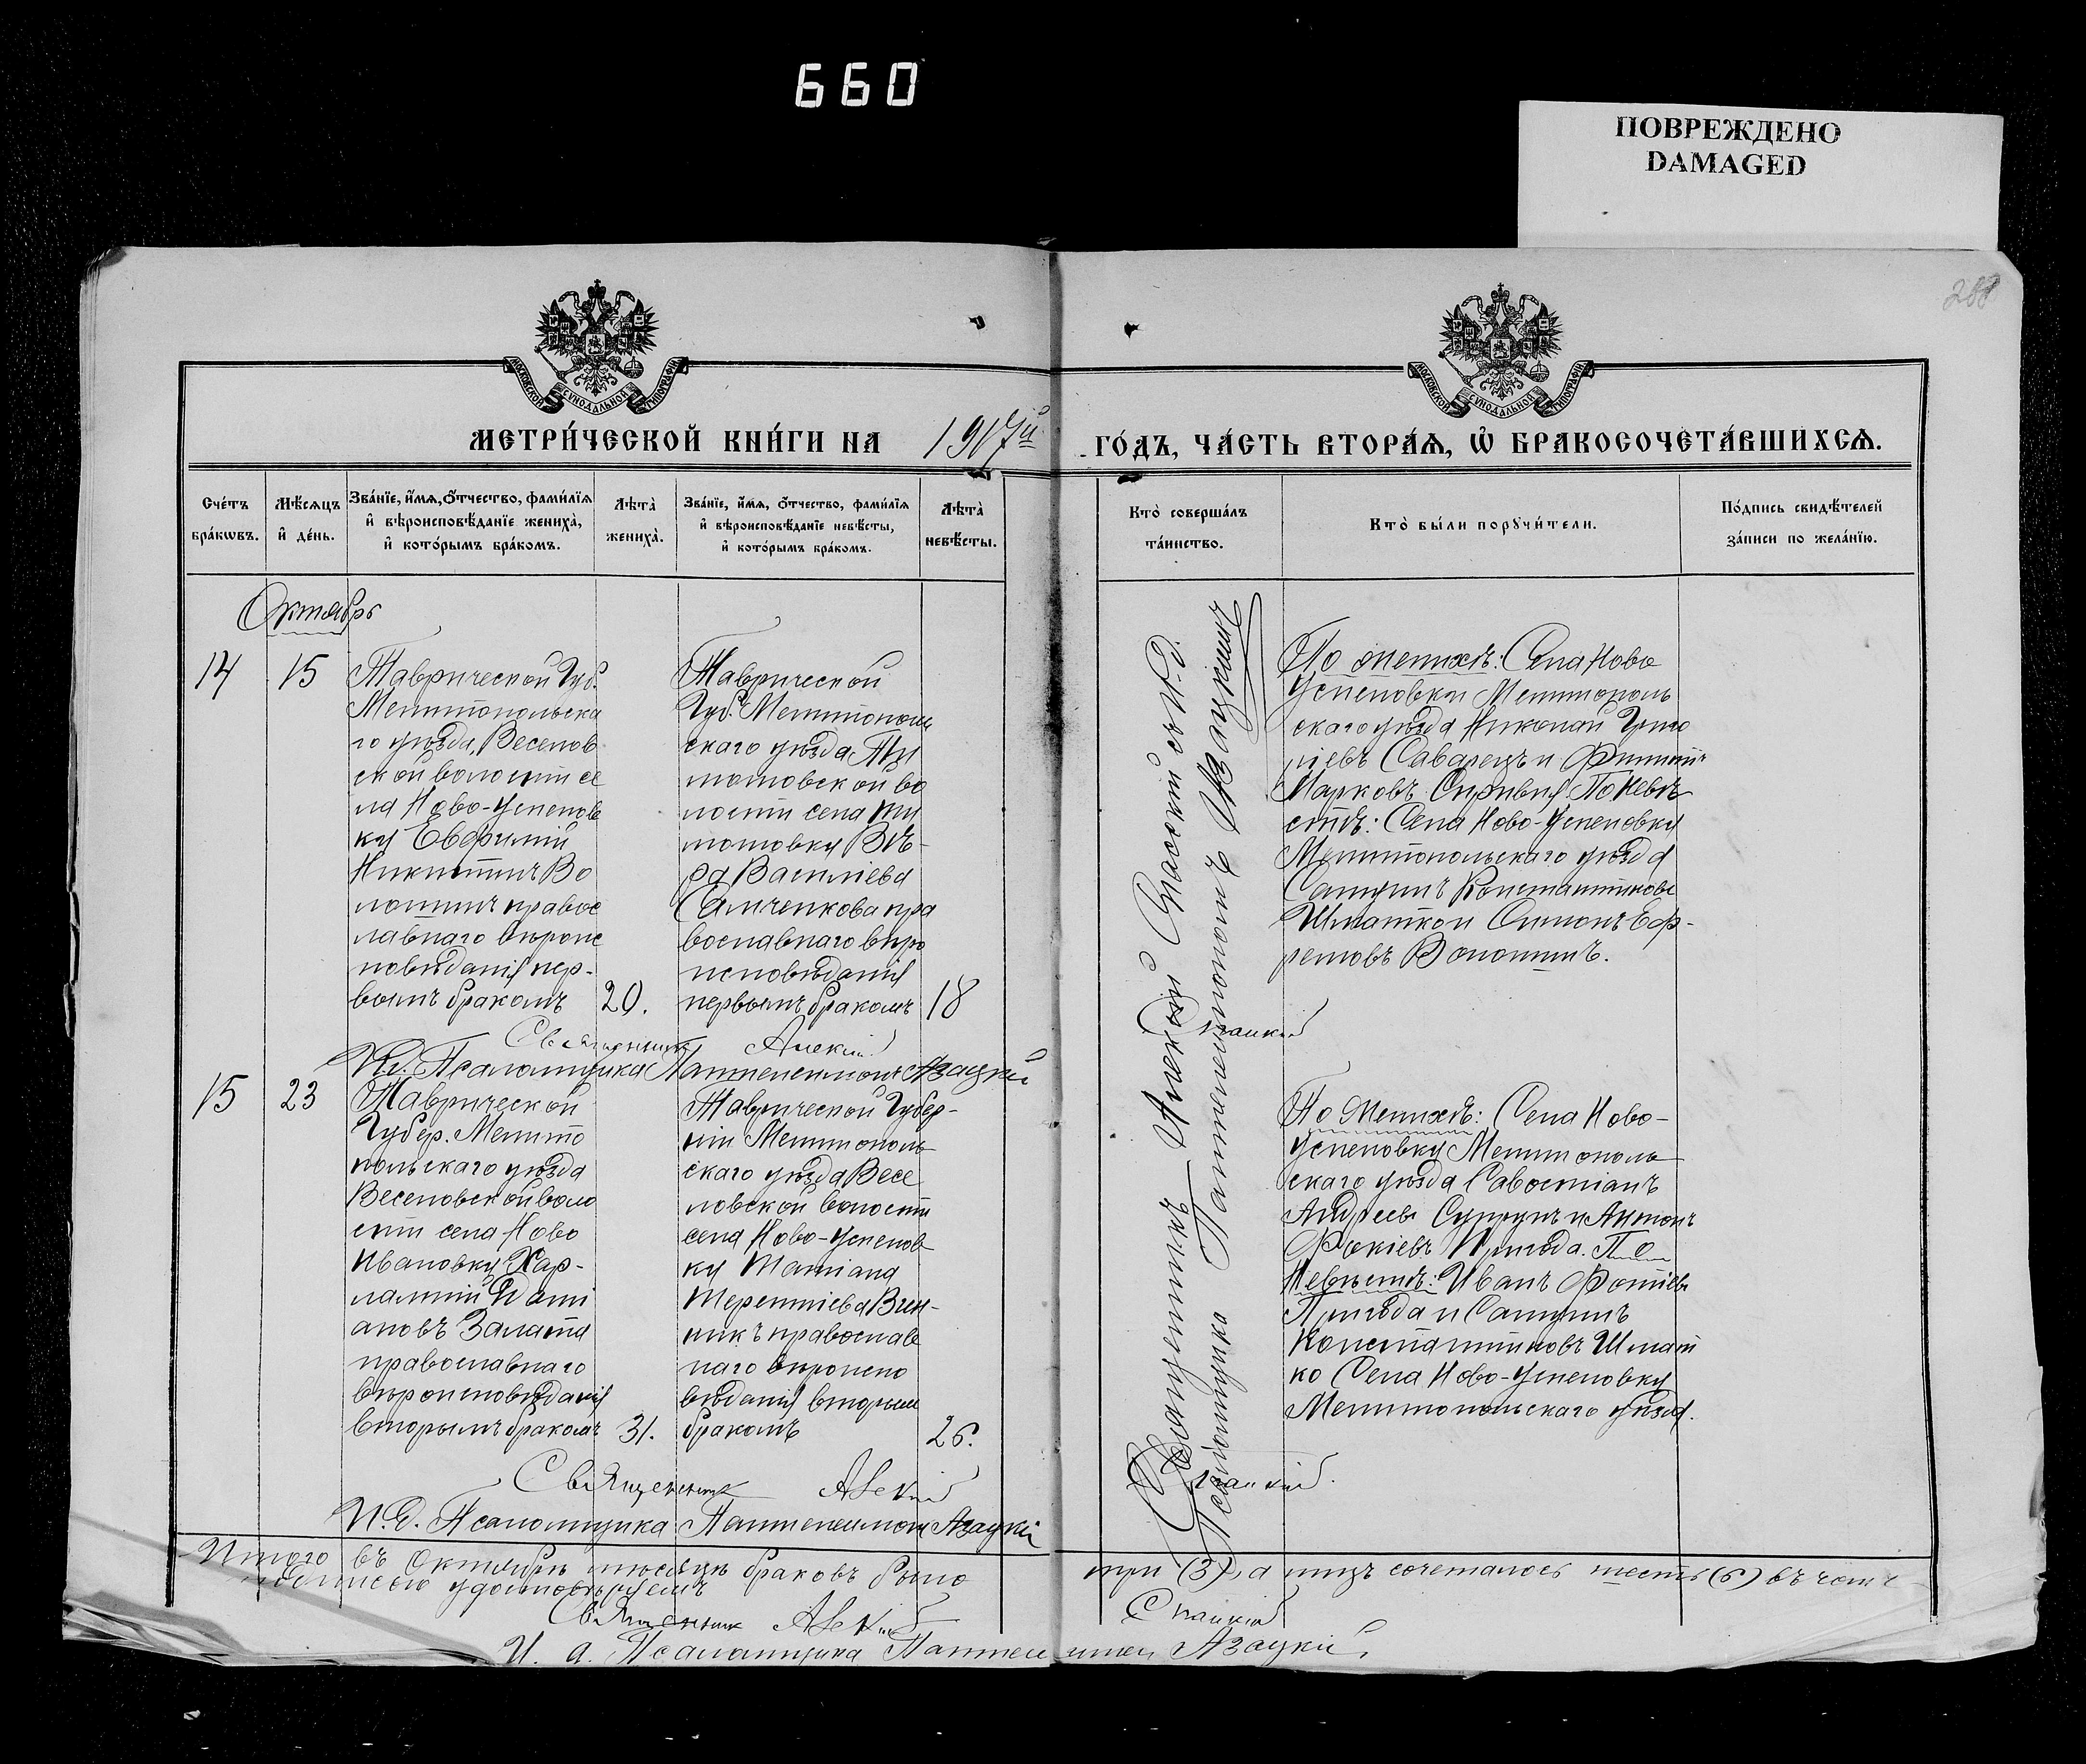 660
ПОВРЕЖДЕНО
DAMAGED
288
МОСКОВСКОЙ СѴНОДАЛЬНОЙ ТИПОГРАФІИ
МОСКОВСКОЙ СѴНОДАЛЬНОЙ ТИПОГРАФІИ
МЕТРИ́ЧЕСКОЙ КНИ́ГИ НА 1917й ГО́ДЪ, ЧА́СТЬ ВТОРА́Ѧ, Ѽ БРАКОСОЧЕТА́ВШИХСѦ.
Сче́тъ
бра́кѡвъ.
Мѣ́сяцъ
и҆ де́нь.
Зва́нїе, и҆́мѧ, ѻ҆́тчество, фами́лїѧ
и҆ вѣроисповѣ́данїе жениха̀,
и҆ кото́рымъ бра́комъ.
Лѣ́та̀
жениха̀.
Зва́нїе, и҆́мѧ, ѻ҆́тчество, фами́лїѧ
и҆ вѣроисповѣ́данїе невѣ́сты,
и҆ кото́рымъ бра́комъ.
Лѣ́та̀
невѣ́сты.
Кто̀ соверша́лъ
та́инство.
Кто̀ бы́ли порꙋчи́тели.
По́дпись свидѣ́телей
за́писи по жела́нїю.
Октябрь
14
15
Таврической Губ.
Мелитопольска
го уѣзда, Веселов
ской волости се
ла Ново-Успенов
ки Евфимій
Никитинъ Во
лошинъ правос
лавнаго вѣроис
повѣданія пер-
вымъ бракомъ
20.
Таврической
Губ. Мелитополь
скаго уѣзда Ти
мошовской во
лости села Ти
мошовки Вѣ-
ра Васильева
Самченкова пра
вославнаго вѣро
исповѣданія
первымъ бракомъ
18
По женихѣ: Села Ново
Успеновки Мелитополь
скаго уѣзда Николай Григо
ріевъ Саварецъ и Филиппъ
Марковъ По Невѣ
стѣ: Села Ново-Успеновки
Мелитопольскаго уѣзда
Самуилъ Константиновъ
Шматко и Симонъ Еф-
ремовъ Волошинъ.
Священникъ Алексій Спасскій
И.д. Псаломщика Пантелеимонъ Азацкій
15
23
Таврической
Губер. Мелито
польскаго уѣзда
Веселовской воло
сти села Ново
Ивановки Хар-
лампій Даmі
ановъ Залата
православнаго
вѣроисповѣданія
вторымъ бракомъ
31.
Таврической Губер-
ніи Мелитополь
скаго уѣзда Весе
ловской волости
села Ново-Успенов
ки Татіана
Терентіева Вин-
никъ православ
наго вѣроиспо
вѣданія вторымъ
бракомъ
26.
По Женихѣ: Села Ново-
Успеновки Мелитополь
скаго уѣзда Савостіанъ
Андреевъ Супрунъ и Антонъ
Фокіевъ Пригода. По
Невѣстѣ: Иванъ Фотіевъ
Пригода и Самуилъ
Константиновъ Шмат
ко Села Ново-Успеновки
Мелитопольскаго уѣзда.
Священникъ Алексій Спасскій
И.д. Псаломщика Пантелеимонъ Азацкій
Священникъ Алексій Спасскій съ И.д.
Псаломщика Пантелеимономъ Азацкимъ
Итого въ Октябрѣ мѣсяцѣ браковъ было три (3), а лицъ сочеталось шесть (6) въ чемъ
подписью удостовѣряемъ
Священникъ Алексій Спасскій
И. д. Псаломщика Пантелеимонъ Азацкій